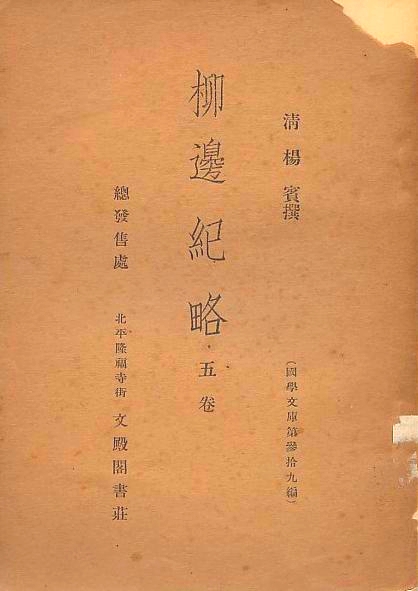 清楊賓撰
(國學文庫第參拾九編)
柳邊紀略
五卷
總發售處
北平隆福寺街 文殿閣書莊